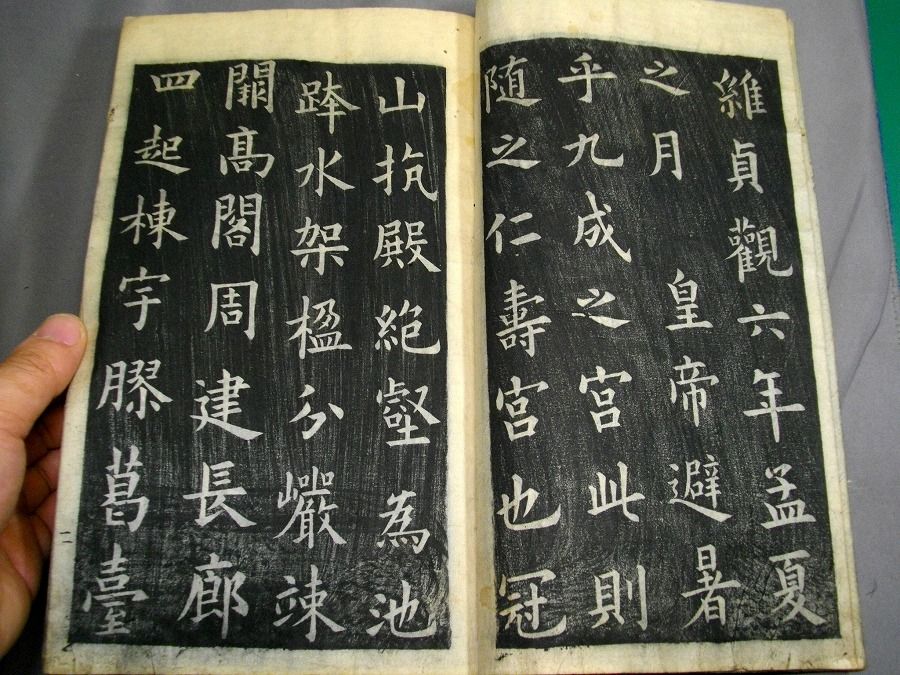 維貞觀六年孟夏
之月 皇帝避暑
乎九成之宮此則
随之仁壽宮也冠
山抗殿絶壑為池
跨水架楹分巖竦
闕高閣周建長廊
四起棟宇膠葛臺
二